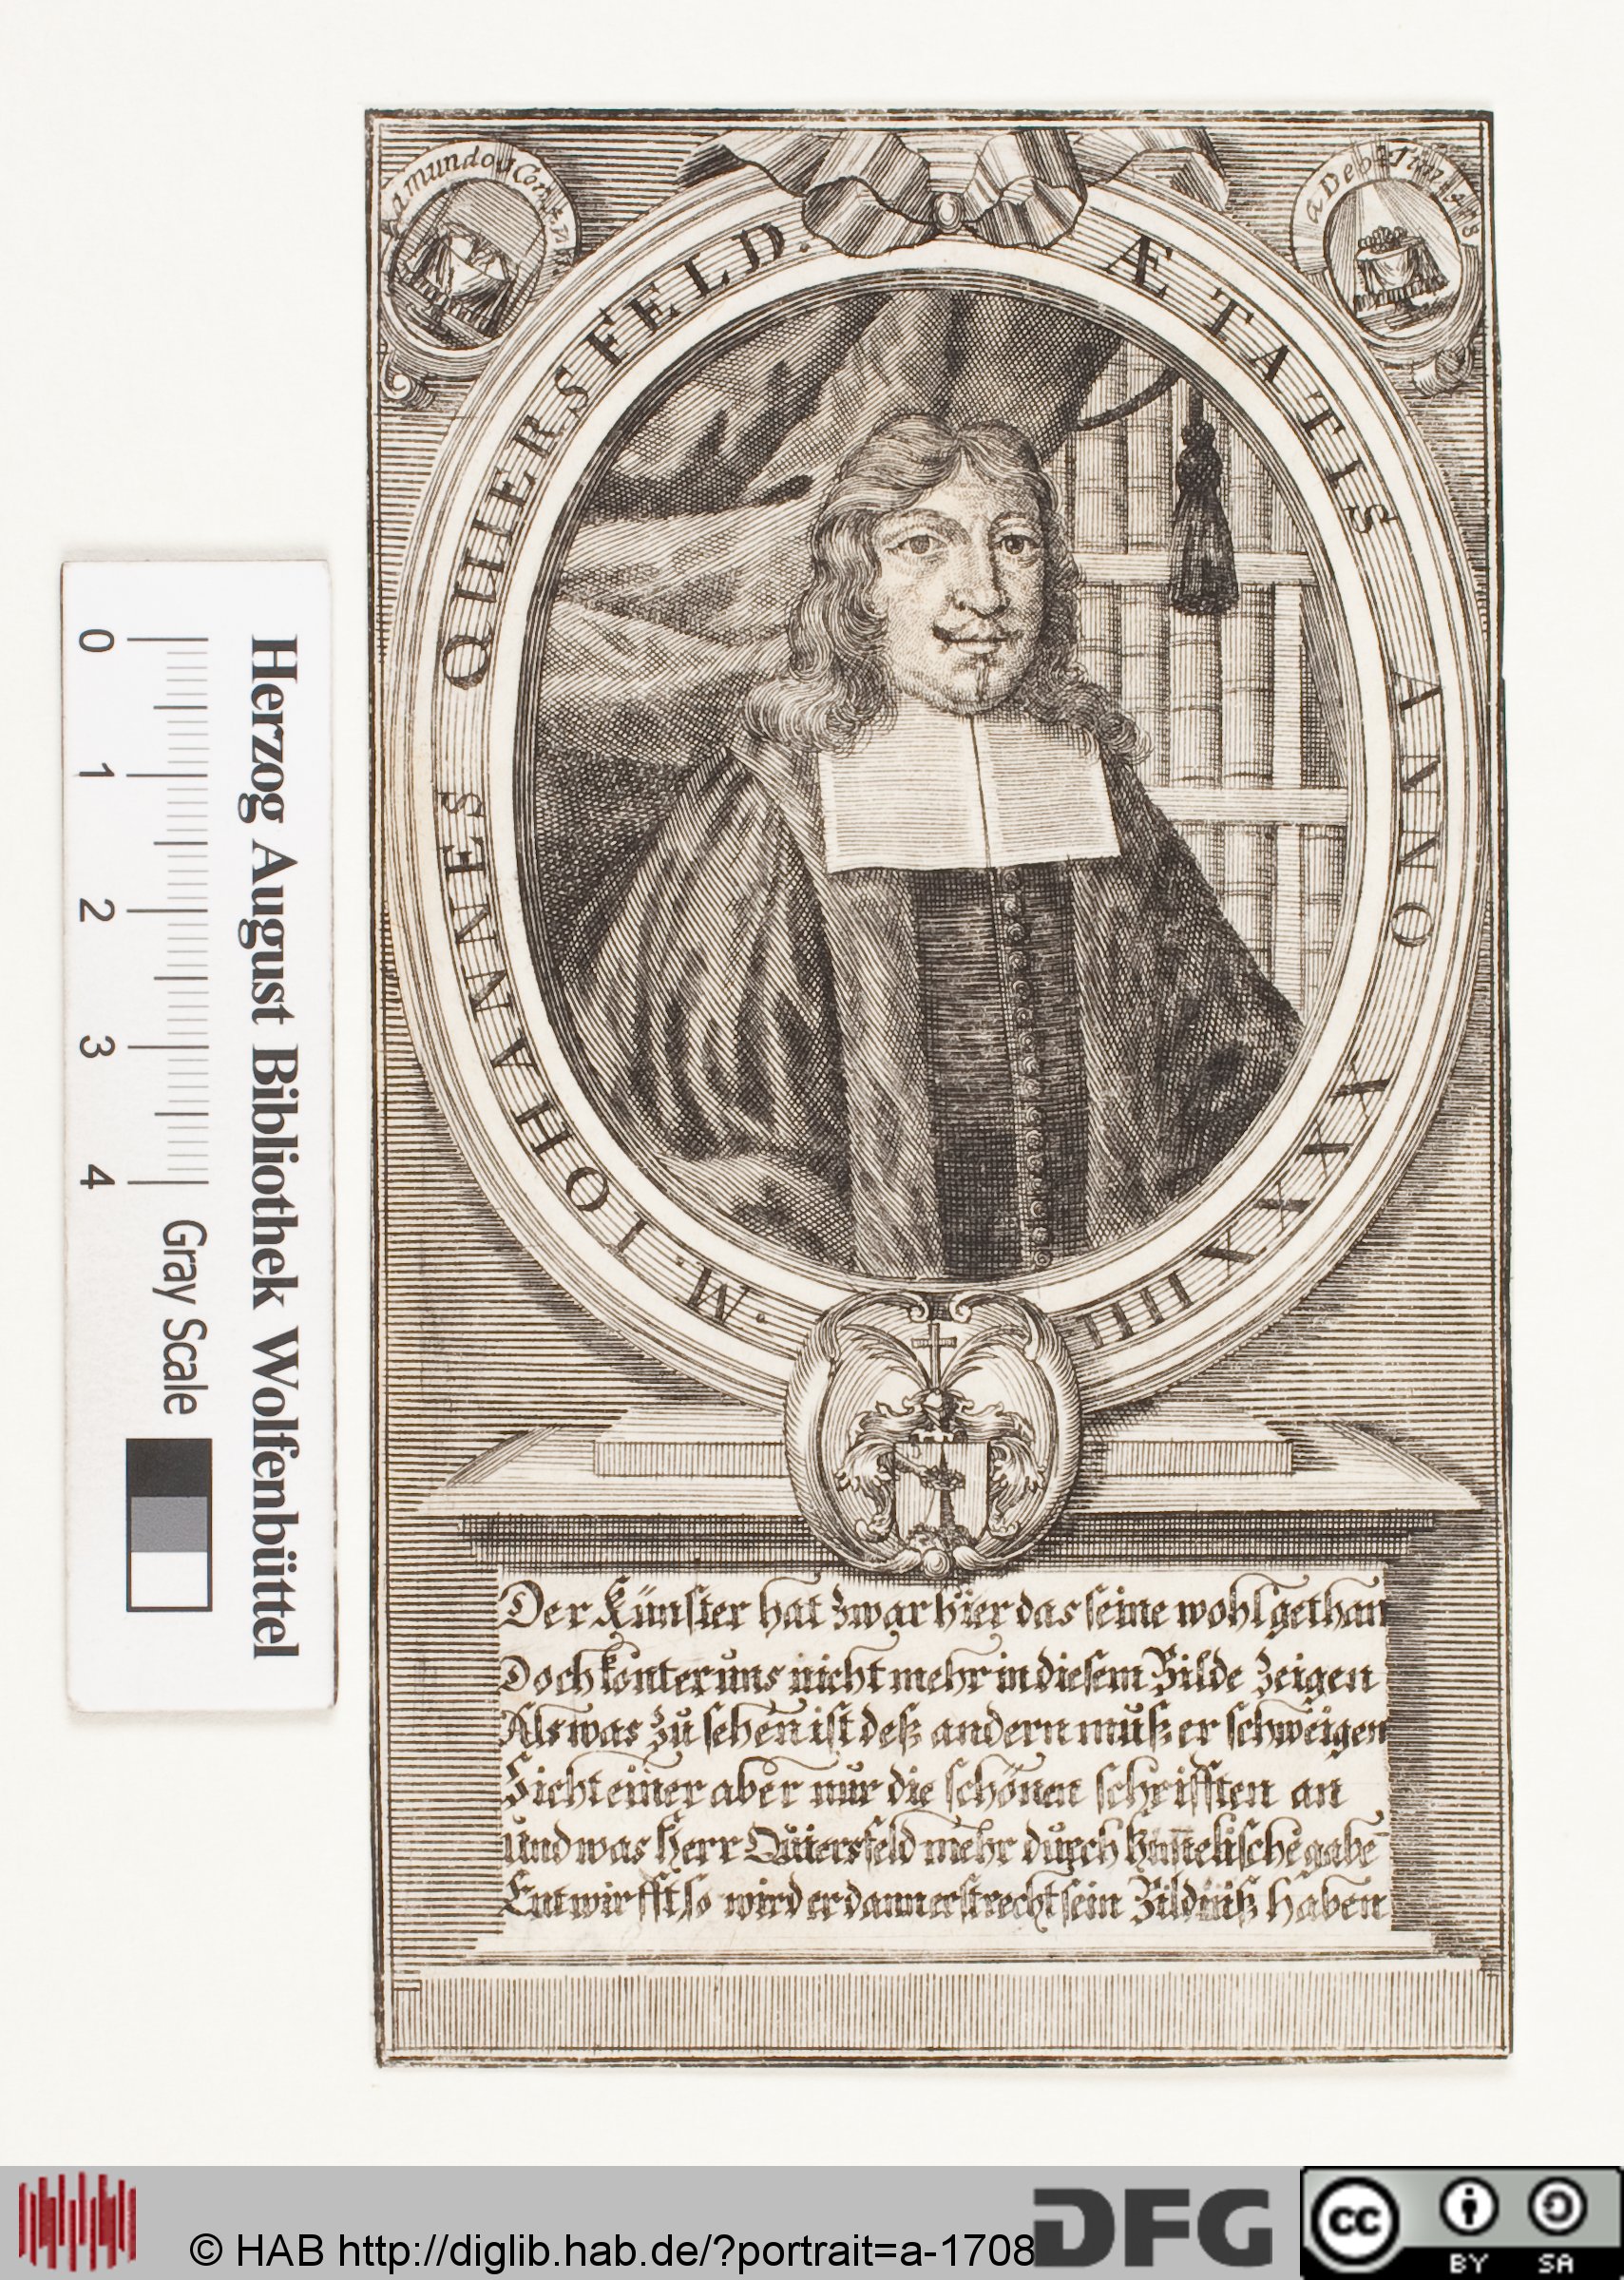 a mundo
a Deo
M. IOHANNES QUIERSFELD.
ÆTATIS ANNO XXXXIIII
Der Künster hat zwar hier das seine wohl gethan
Doch konter uns nicht mehr in diesem Bilde zeigen
Als was zu sehen ist deß andern muß er schweigen
Sicht einer aber nur die schönen schrifften an
Und was Herr Quiersfeld mehr durch künstelische gabe
Entwirfft, so wird er dann erst recht sein Bildniß haben
Herzog August Bibliothek Wolfenbüttel
0 1 2 3 4 Gray Scale
© HAB http://diglib.hab.de/?portrait=a-1708
DFG
cc BY SA